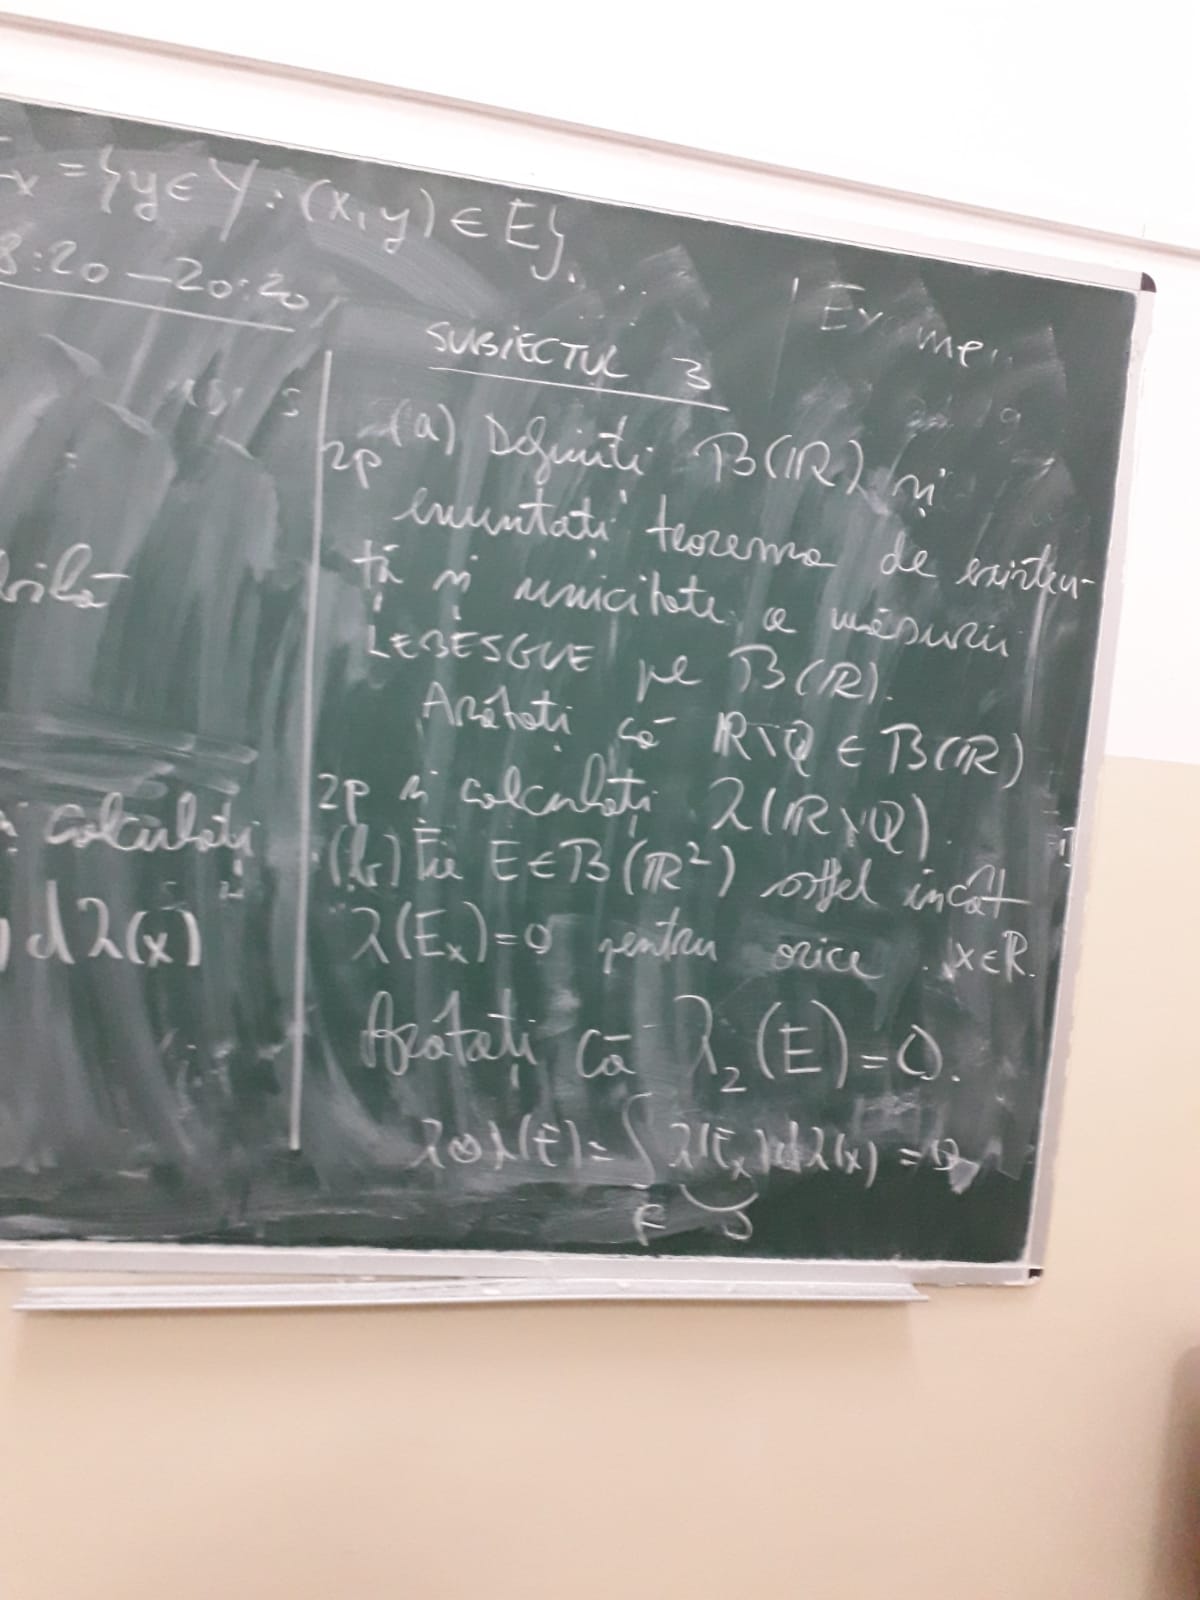 x = {y ∈ Y : (x, y) ∈ E}. . .
8:20 – 20:20
SUBIECTUL 3
2p (a) Definiți B(ℝ) și
enunțați teorema de existen-
ță și unicitate a măsurii
LEBESGUE pe B(ℝ).
Arătați că ℝ\Q ∈ B(ℝ)
2p și calculați λ(ℝ\Q).
(b) Fie E ∈ B(ℝ²) astfel încât
λ(Eₓ) = 0 pentru orice x ∈ ℝ.
Arătați că λ₂(E) = 0.
λ⊗λ(E) = ∫ λ(Eₓ) dλ(x) = 0
calculați
dλ(x)